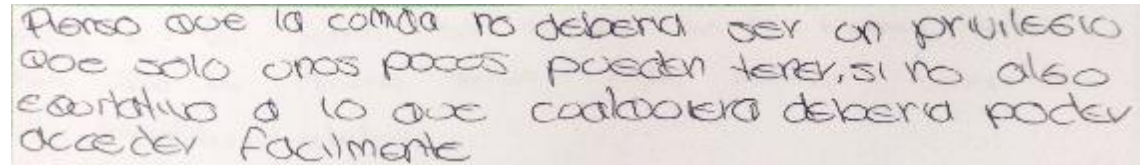 Pienso que la comida no deberia ser un privilegio
que solo unos pocos pueden tener, si no algo
equitativo a lo que cualquiera deberia poder
acceder facilmente